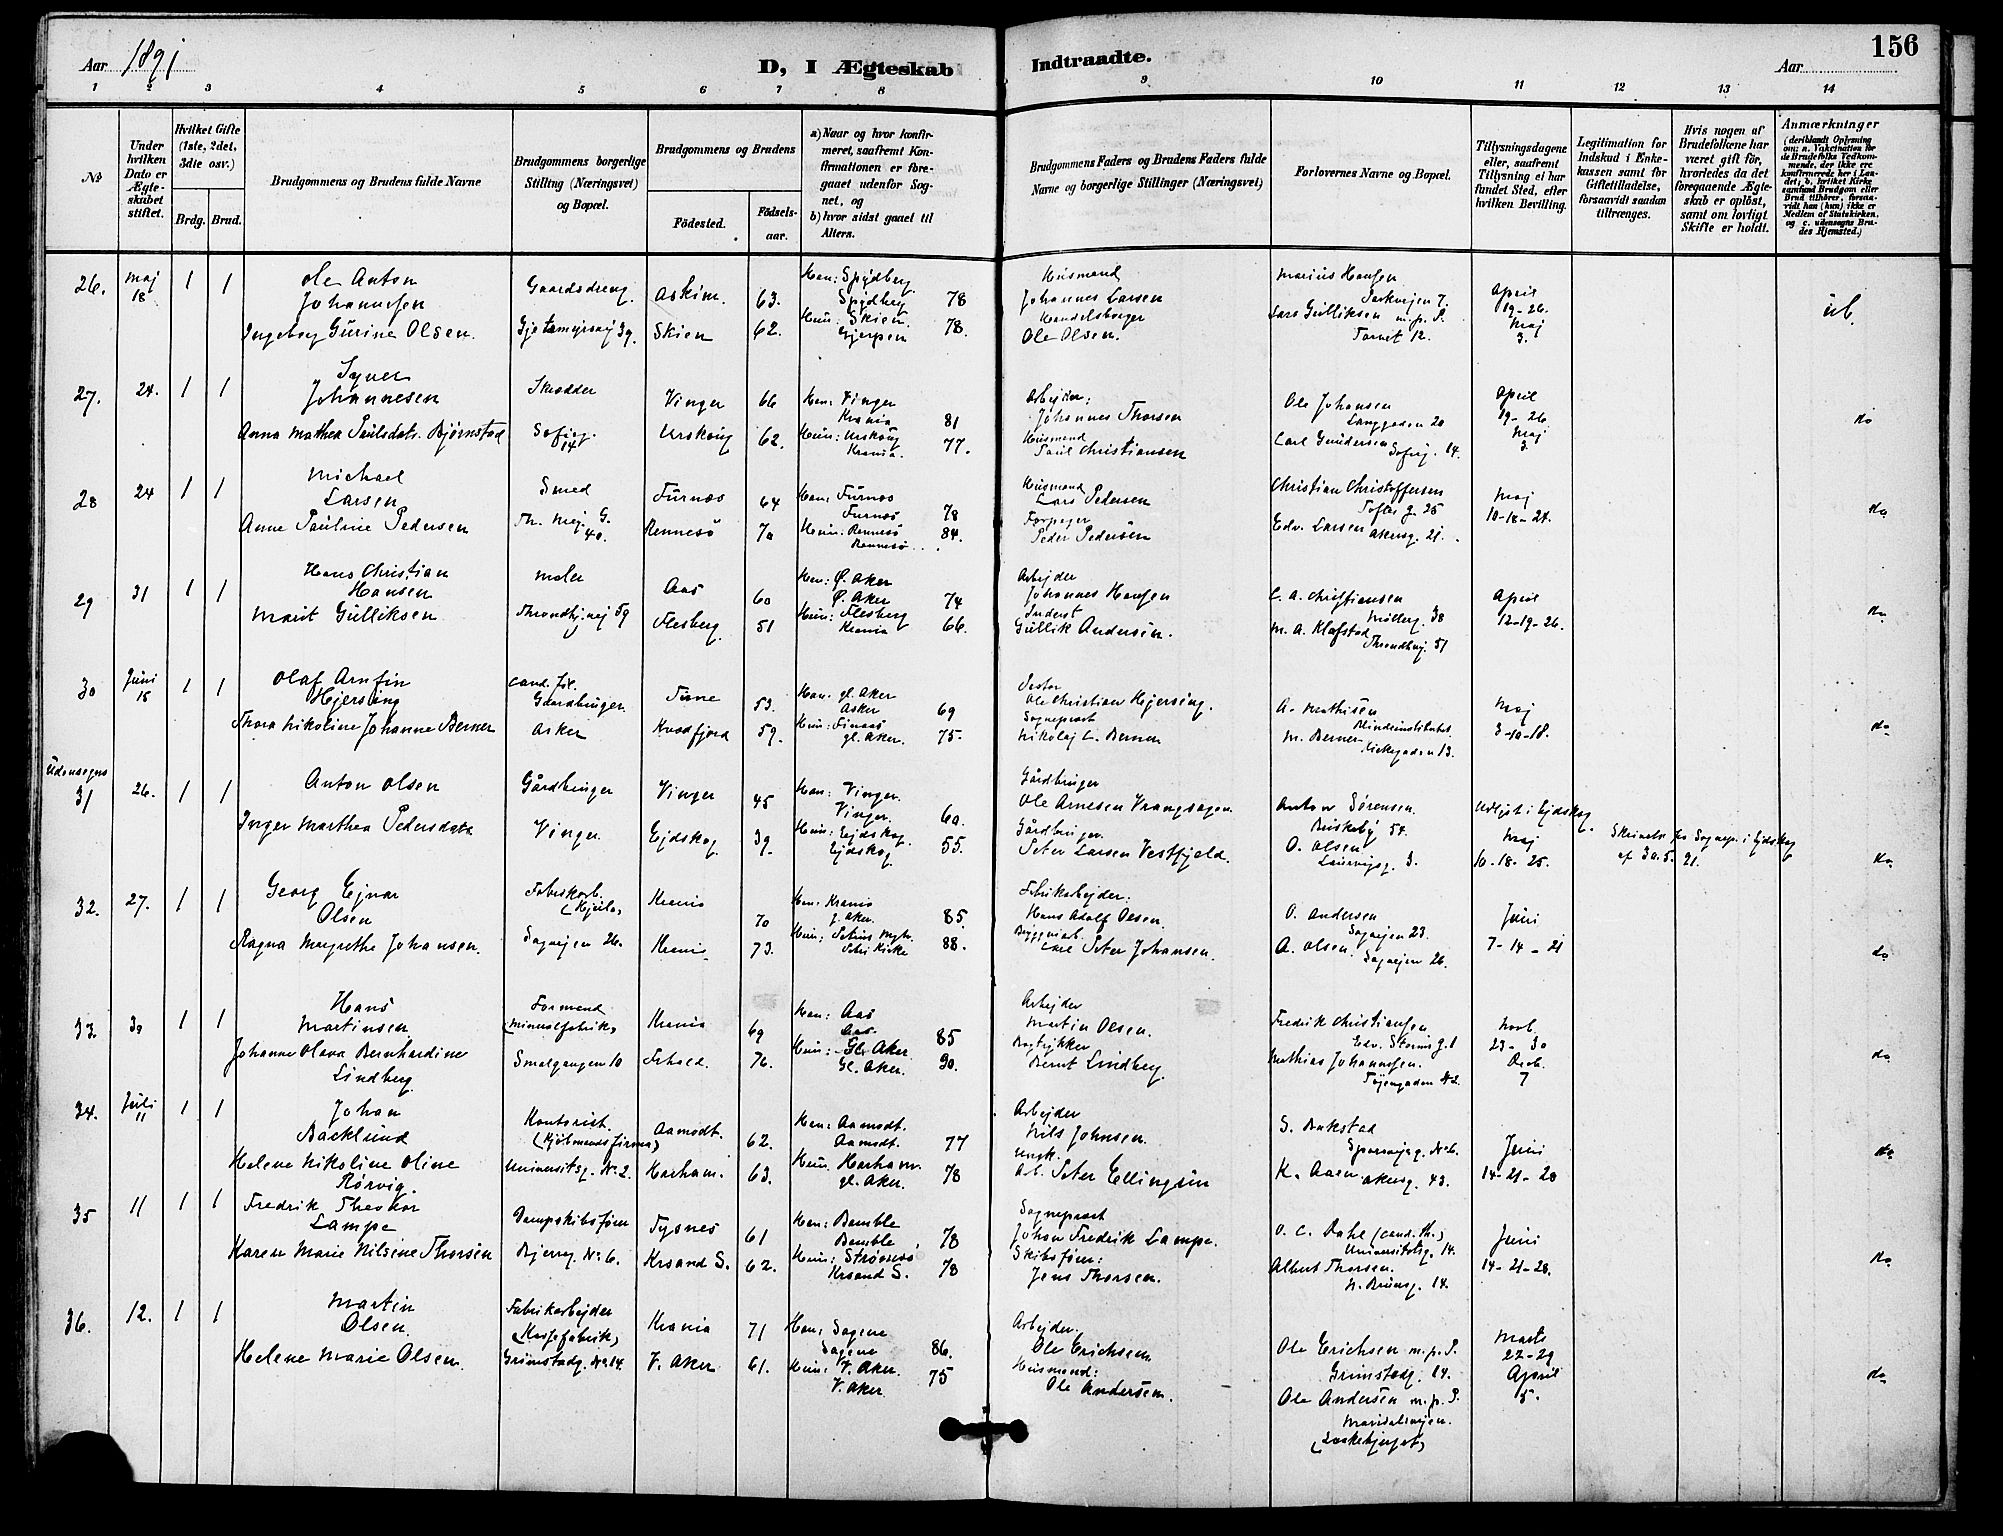 Aar 1891
D, I Ægteskab Indtraadte.
Aar
156
1 2 3 4 5 6 7 8 9 10 11 12 13 14
No
Under hvilken Dato er Ægteskabet stiftet.
Hvilket Gifte (1ste, 2det, 3die osv.)
Brdg. Brud.
Brudgommens og Brudens fulde Navne
Brudgommens borgerlige Stilling (Næringsvei) og Bopæl.
Brudgommens og Brudens
Födested. Födselsaar.
a) Naar og hvor konfirmeret, saafremt Konfirmationen er foregaaet udenfor Sognet, og
b) hvor sidst gaaet til Alters.
Brudgommens Faders og Brudens Faders fulde Navne og borgerlige Stillinger (Næringsvei)
Forlovernes Navne og Bopæl.
Tillysningsdagene eller, saafremt Tillysning ei har fundet Sted, efter hvilken Bevilling.
Legitimation for Indskud i Enkekassen samt for Giftetilladelse, forsaavidt saadan tiltrænges.
Hvis nogen af Brudefolkene har været gift før, hvorledes da det foregaaende Ægteskab er opløst, samt om lovligt Skifte er holdt.
Anmærkninger
(deriblandt Oplysning om: a. Vakcination for de Brudefolks Vedkommende, der ikke ere konfirmerede her i Landet; b. hvilket Kirkesamfund Brudgom eller Brud tilhører, forsaavidt han (hun) ikke er Medlem af Statskirken, og c. udensogns Brudes Hjemsted.)
26. Maj 18 1 1 Ole Anton Johannesen Gaardsdreng Askim. 63. Han: Spydberg. Spydberg 78 Husmand Johannes Larsen Marius Hansen Parkvejen 7. April 19-26. ub.
Ingeborg Gurine Olsen. Gjetemyrsvej 39. Skien 62. Hun: Skien. Gjerpen 78. Handelsborger Ole Olsen. Lars Gulliksen m.p.P. Torvet 12. Maj 3.
27. 24. 1 1 Syver Johannesen Skrædder Vinger 66 Han: Vinger Krania 81 Arbejder: Johannes Thorsen Ole Johansen Langgaden 20 April 19-26. do
Anna Mathea Paulsdatr. Bjørnstad Sofieg. 14 Urskoug 62. Hun: Urskoug Krania. 77. Husmand Paul Christiansen Carl Gundersen Sofieg. 14. Maj 3
28 24 1 1 Michael Larsen Smed Furnæs 64 Han: Furnæs Furnæs 78 Husmand Lars Pedersen Christian Christoffersen Toftes g. 25 Maj 10-18-24. do
Anne Pauline Pedersen Th. Mej. G. 40. Rennesö 70 Hun: Rennesö Rennesö 84. Peder Pedersen Edv. Larsen Akersg. 21.
29 31 1 1 Hans Christian Hansen Maler Aas 60 Han: Ø. Aker Ø. Aker 74 Arbejder Johannes Hansen C. A. Christiansen Møllerg. 38 April 12-19-26. do
Marit Gulliksen Throndhj.vej 59 Flesberg 51 Hun: Flesberg Krania 66. Inderst Gullik Andersen. M. A. Klafstad Throndhvj. 51
30 Juni 16 1 1 Olaf Arnfin Hjersing Gaardbruger. 53. Han: gl. Aker Asker 69 Ole Christian Hjersing. A. Mathisen Blindeinstitutet. Maj 3-10-18. do
Thora Nikoline Johanne Berner Asker Kvædfjord 59. Hun: Finaas gl. Aker. 75. Sogneprest Nikolaj C. Berner M. Berner Kirkegaden 13.
Udensogns
31 26. 1 1 Anton Olsen Gårdbruger Vinger 45 Han: Vinger. Vinger. 60. Gårdbruger Ole Arnesen Vrangsagen. Anton Sørensen Briskeby 54. Udlyst i Ejdskog. Maj 10-18-25. Skrivelse fra Sognepr. i Ejdskog af 30.5.91. do
Inger Marthea Pedersdatr Vinger. Ejdskog 39. Hun: Ejdskog Ejdskog 55. Gårdbruger Peter Larsen Vestfjeld. O. Olsen Laurvigsg. 3.
32. 27. 1 1 Georg Ejnar Olsen Fabrikarb. Krania 70 Han: Krania g. Aker. 85. Fabrikarbejder: Hans Adolf Olsen. O. Andersen Sagvejen 23. Juni 7-14-21 do
Ragna Margrethe Johansen. Sagvejen 26. Krania 73. Hun: Petrus Mgh. Petri Kirke 88. Carl Peter Johansen. A. Olsen. Sagvejen 26.
33. 30 1 1 Hans Martinsen Formand Krania 69 Han: Aas Aas 85 Arbejder Martin Olsen. Fredrik Christiansen Edv. Stormsg. 1 Novb. 23-30 do
Johanne Olava Bernhardine Lindberg. Smalgangen 10 76. Hun: Gl. Aker. Gl. Aker. 90. Bogtrykker Bernt Lindberg. Mathias Johannesen. Tøjengaden 42. Decb. 7
34. Juli 11 1 1 Johan Bäcklund Kontorist. (Kjöbmandsfirma) Aamodt. 62. Han: Aamodt. Aamodt. 77 Arbejder Nils Johnsen. S. Bakstad Sporveisg. No 6. Juni 14-21-28 do
Helene Nikoline Oline Rørvig. Universitsg. No 2. Harham. 63. Hun: Harham. gl. Aker. 78 Arb. Peter Ellingsen K. Aasen Akersg. 43.
35 11 1 1 Fredrik Theodor Lampe Dampskibsfører Tysnes 61 Han: Bamble Bamble 78 Sogneprest Johan Fredrik Lampe. O. C. Dahl (cand. th.) Universitetsg. 14. Juni 14-21-28. do
Karen Marie Nilsine Thorsen Bjerreg. No 6. Krsand S. 62. Hun: Strømsö Krsand S. 78 Skibsfører: Jens Thorsen. Albert Thorsen. N. Brunsg. 14.
36. 12. 1 1 Martin Olsen. Fabrikarbejder Krania 71 Han: Sagene Sagene 86. Arbejder. Ole Erichsen Ole Erichsen m.p.P. Grimstadg. 14. Marts 22-29 do
Helene Marie Olsen. Grimstadg. No 14. V. Aker 61. Hun: V. Aker. V. Aker 75 Husmand: Ole Andersen. Ole Andersen m.p.P. Maridalsvejen. April 5.